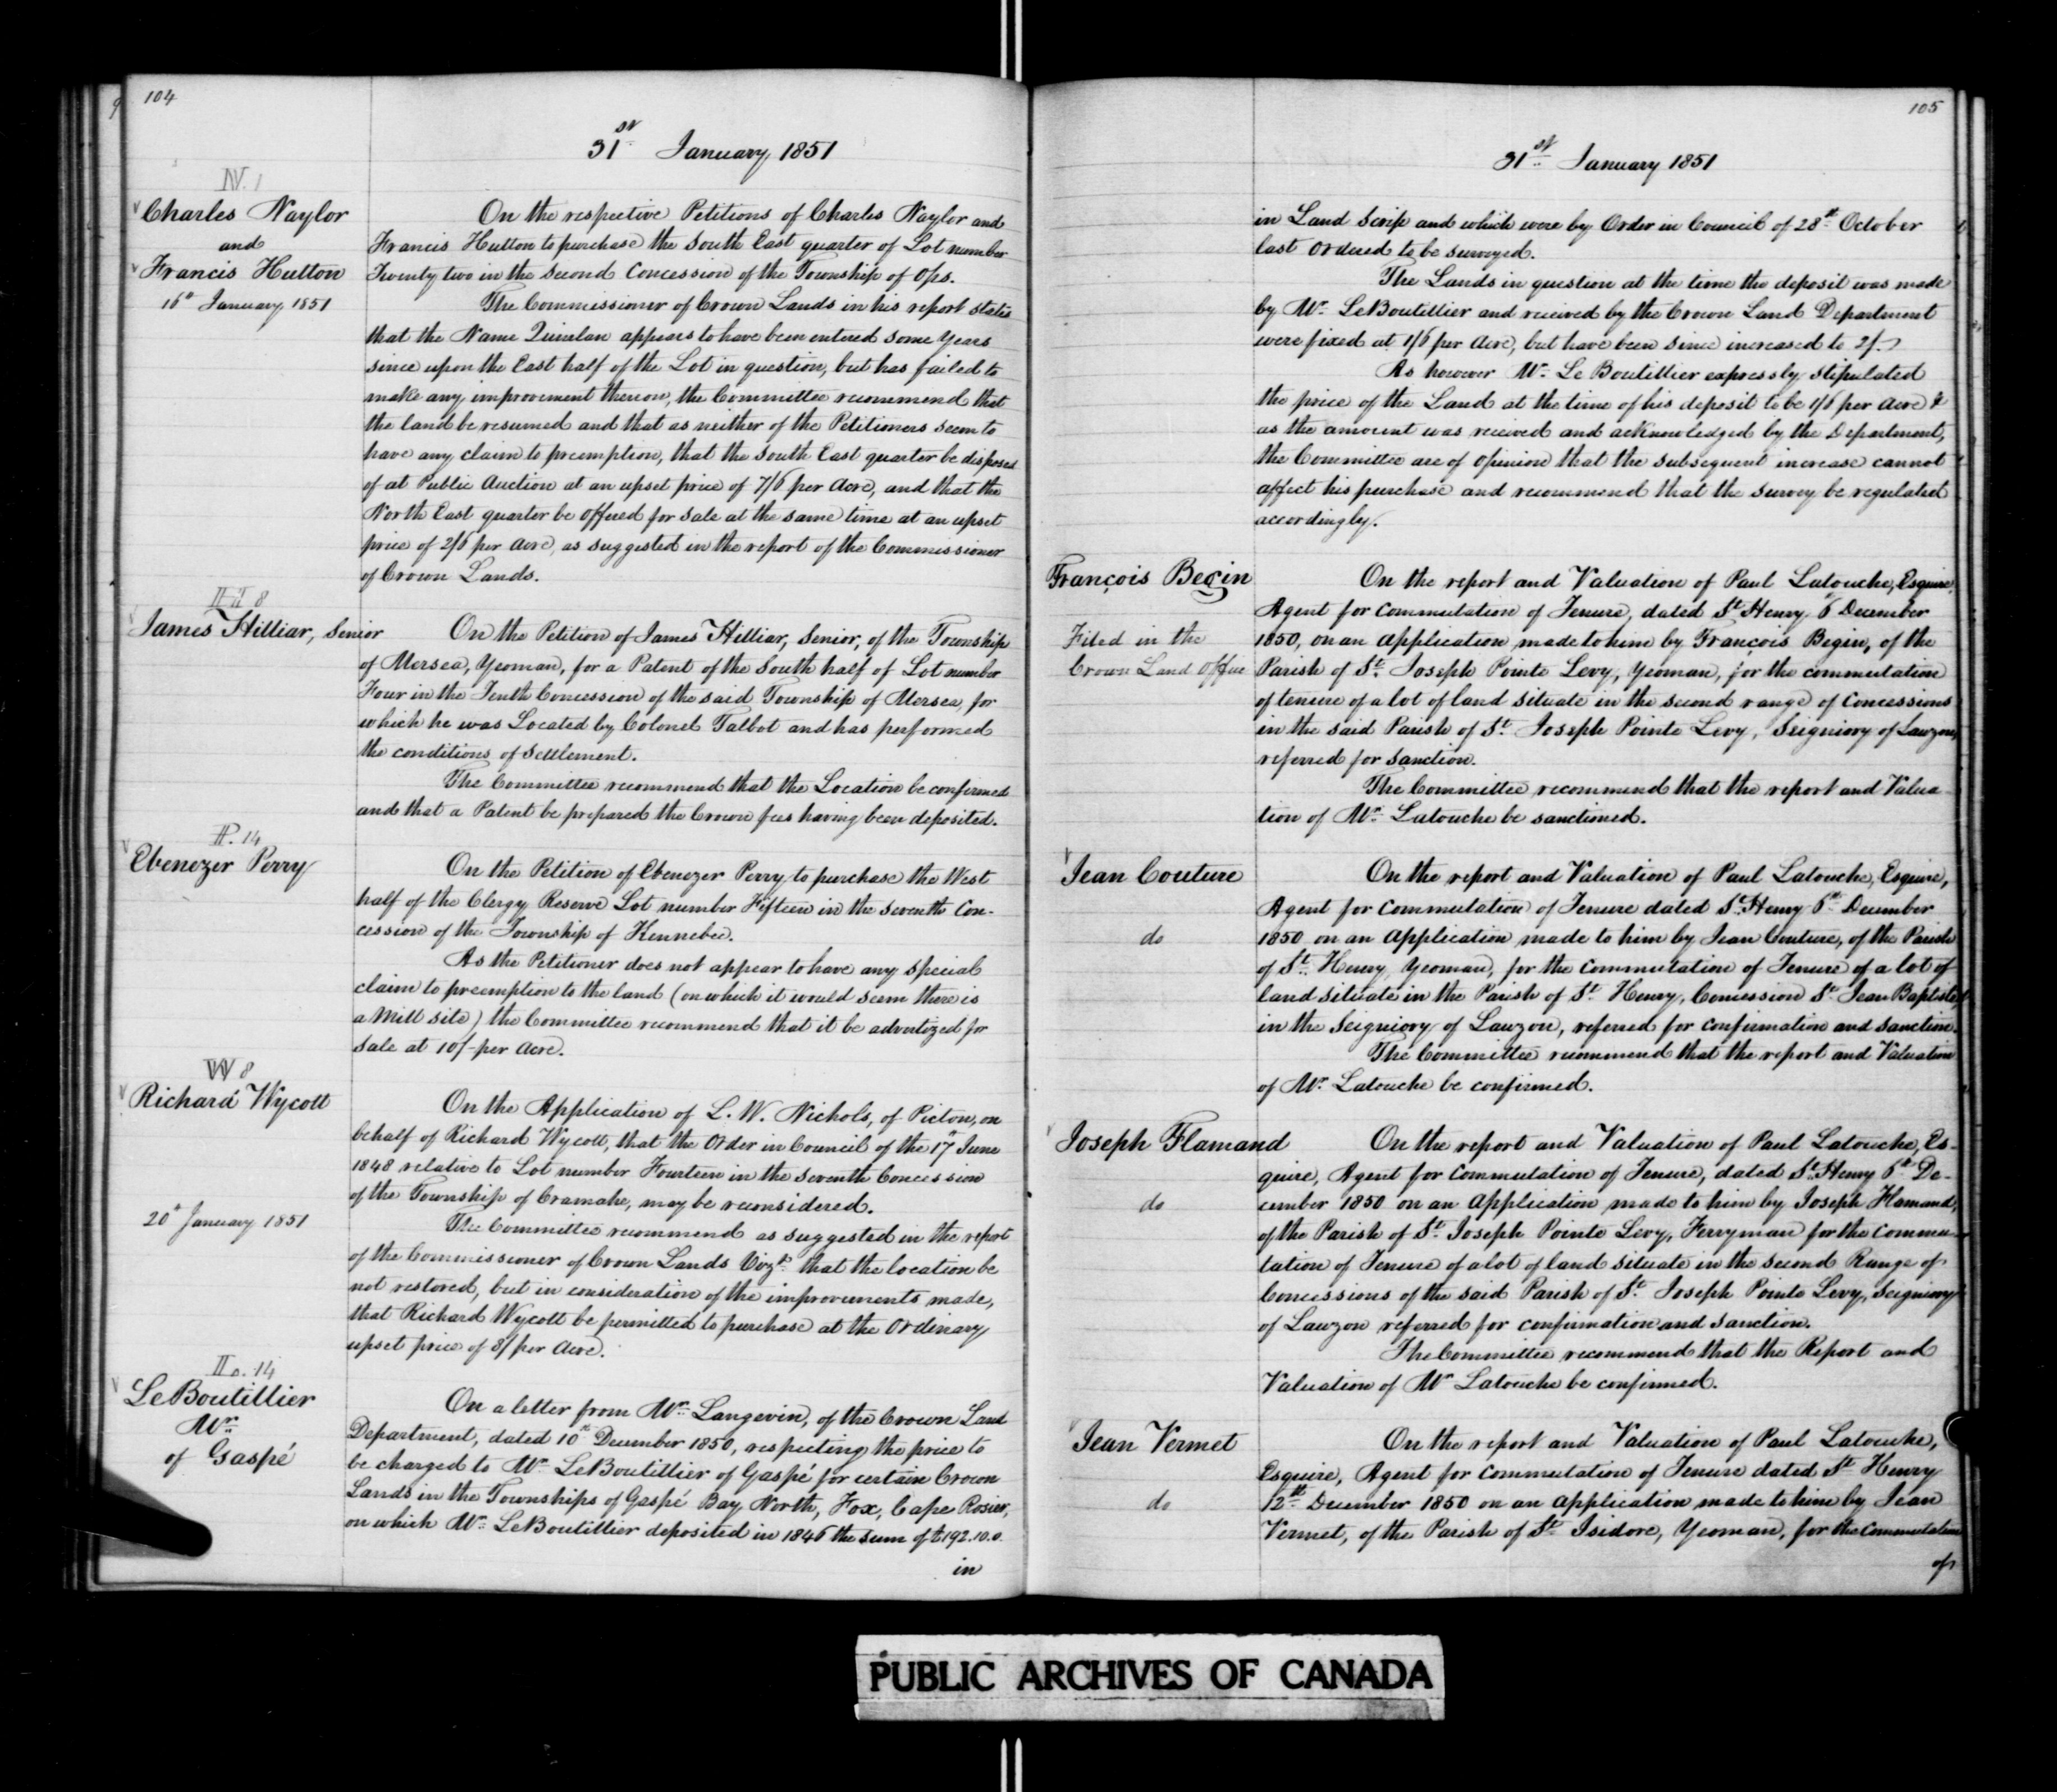 104
31st January 1851
N. 1
Charles Naylor
and
Francis Hutton
16th January 1851
On the respective Petitions of Charles Naylor and
Francis Hutton to purchase the South East quarter of Lot number
Twenty two in the Second Concession of the Township of Ops.
The Commissioner of Crown Lands in his report states
that the Name Quinlan appears to have been entered some Years
since upon the East half of the Lot in question, but has failed to
make any improvement thereon, the Committee recommend that
the land be resumed and that as neither of the Petitioners seem to
have any claim to preemption, that the South East quarter be disposed
of at Public Auction at an upset price of 7/6 per Acre, and that the
North East quarter be offered for sale at the same time at an upset
price of 2/6 per Acre, as suggested in the report of the Commissioner
of Crown Lands.
8
James Hilliar, Senior
On the Petition of James Hilliar, Senior, of the Township
of Mersea, Yeoman, for a Patent of the South half of Lot number
Four in the Tenth Concession of the said Township of Mersea, for
which he was Located by Colonel Talbot and has performed
the conditions of Settlement.
The Committee recommend that the Location be confirmed
and that a Patent be prepared the Crown fees having been deposited.
P. 14
Ebenezer Perry
On the Petition of Ebenezer Perry to purchase the West
half of the Clergy Reserve Lot number Fifteen in the Seventh Con-
cession of the Township of Kennebec.
As the Petitioner does not appear to have any special
claim to preemption to the land (on which it would seem there is
a Mill site) the Committee recommend that it be advertized for
sale at 10/- per Acre.
W 8
Richard Wycott
20th January 1851
On the Application of L. W. Nichols, of Picton, on
behalf of Richard Wycott, that the Order in Council of the 17th June
1848 relative to Lot number Fourteen in the Seventh Concession
of the Township of Cramahe, may be reconsidered.
The Committee recommend as suggested in the report
of the Commissioner of Crown Lands Vizt. that the location be
not restored, but in consideration of the improvements made,
that Richard Wycott be permitted to purchase at the Ordinary
upset price of 8/ per Acre.
14
LeBoutillier
Mr.
of Gaspé
On a letter from Mr. Langevin, of the Crown Land
Department, dated 10th December 1850, respecting the price to
be charged to Mr. LeBoutillier of Gaspé for certain Crown
Lands in the Townships of Gaspé Bay North, Fox, Cape Rosier,
on which Mr. LeBoutillier deposited in 1846 the sum of £192.10.0.
in
105
31st January 1851
in Land Scrip and which were by Order in Council of 28th October
last Ordered to be surveyed.
The Lands in question at the time the deposit was made
by Mr. LeBoutillier and received by the Crown Land Department
were fixed at 1/6 per Acre, but have been since increased to 2/-
As however Mr. Le Boutillier expressly stipulated
the price of the Land at the time of his deposit to be 1/6 per Acre &
as the amount was received and acknowledged by the Department,
the Committee are of opinion that the subsequent increase cannot
affect his purchase and recommend that the survey be regulated
accordingly.
François Begin
Filed in the
Crown Land Office
On the report and Valuation of Paul Latouche, Esquire,
Agent for Commutation of Tenure, dated St Henry 6 December
1850, on an Application made to him by François Begin, of the
Parish of St. Joseph Pointe Levy, Yeoman, for the commutation
of tenure of a lot of land situate in the second range of Concessions
in the said Parish of St. Joseph Pointe Levy, Seigniory of Lauzon,
referred for sanction.
The Committee recommend that the report and Valua-
tion of Mr. Latouche be sanctioned.
Jean Couture
do
On the report and Valuation of Paul Latouche, Esquire,
Agent for Commutation of Tenure dated St. Henry 6th December
1850 on an Application made to him by Jean Couture, of the Parish
of St. Henry, Yeoman, for the Commutation of Tenure of a lot of
land situate in the Parish of St. Henry, Concession St. Jean Baptiste,
in the Seigniory of Lauzon, referred for confirmation and sanction.
The Committee recommend that the report and Valuation
of Mr. Latouche be confirmed.
Joseph Flamand
do
On the report and Valuation of Paul Latouche, Es-
quire, Agent for Commutation of Tenure, dated St. Henry 6th De-
cember 1850 on an Application made to him by Joseph Flamand,
of the Parish of St. Joseph Pointe Levy, Ferryman for the Commu-
tation of Tenure of a lot of land situate in the second Range of
Concessions of the said Parish of St. Joseph Pointe Levy, Seigniory
of Lauzon referred for confirmation and sanction.
The Committee recommend that the Report and
Valuation of Mr Latouche be confirmed.
Jean Vermet
do
On the report and Valuation of Paul Latouche,
Esquire, Agent for Commutation of Tenure dated St Henry
12th December 1850 on an Application made to him by Jean
Vermet, of the Parish of St Isidore, Yeoman, for the Commutation
of
PUBLIC ARCHIVES OF CANADA